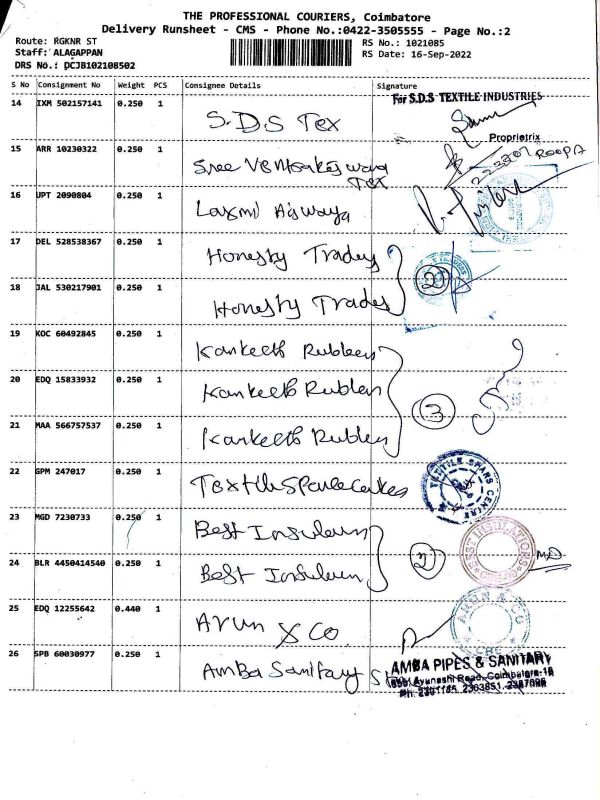 THE PROFESSIONAL COURIERS, Coimbatore
Delivery Runsheet - CMS - Phone No.:0422-3505555 - Page No.:2
Route: RGKNR ST
Staff: ALAGAPPAN
DRS No.: DCJB102108502
RS No.: 1021085
RS Date: 16-Sep-2022
S No Consignment No Weight PCS Consignee Details Signature
For S.D.S TEXTILE INDUSTRIES
14 IXM 502157141 0.250 1 S.D.S Tex
Proprietrix
15 ARR 10230322 0.250 1 Sree Tex
ROOPA
16 UPT 2090804 0.250 1 Laxmi
17 DEL 528538367 0.250 1 Honesty Trades
2
18 JAL 530217901 0.250 1 Honesty Trades
19 KOC 60492845 0.250 1 Kankeeth Rubbers
20 EDQ 15833932 0.250 1 Kankeeth Rubbers
3
21 MAA 566757537 0.250 1 Kankeeth Rubbers
22 GPM 247017 0.250 1 TEXTILE SPARS CENTRE
23 MGD 7230733 0.250 1 Best
BEST INSULATIONS
2 MD
24 BLR 4450414540 0.250 1 Best
25 EDQ 12255642 0.440 1 Arun & Co.
ARUN & CO
26 SPB 60030977 0.250 1 Amba Sanitary
AMBA PIPES & SANITARY
Avanashi Road, Coimbatore-18